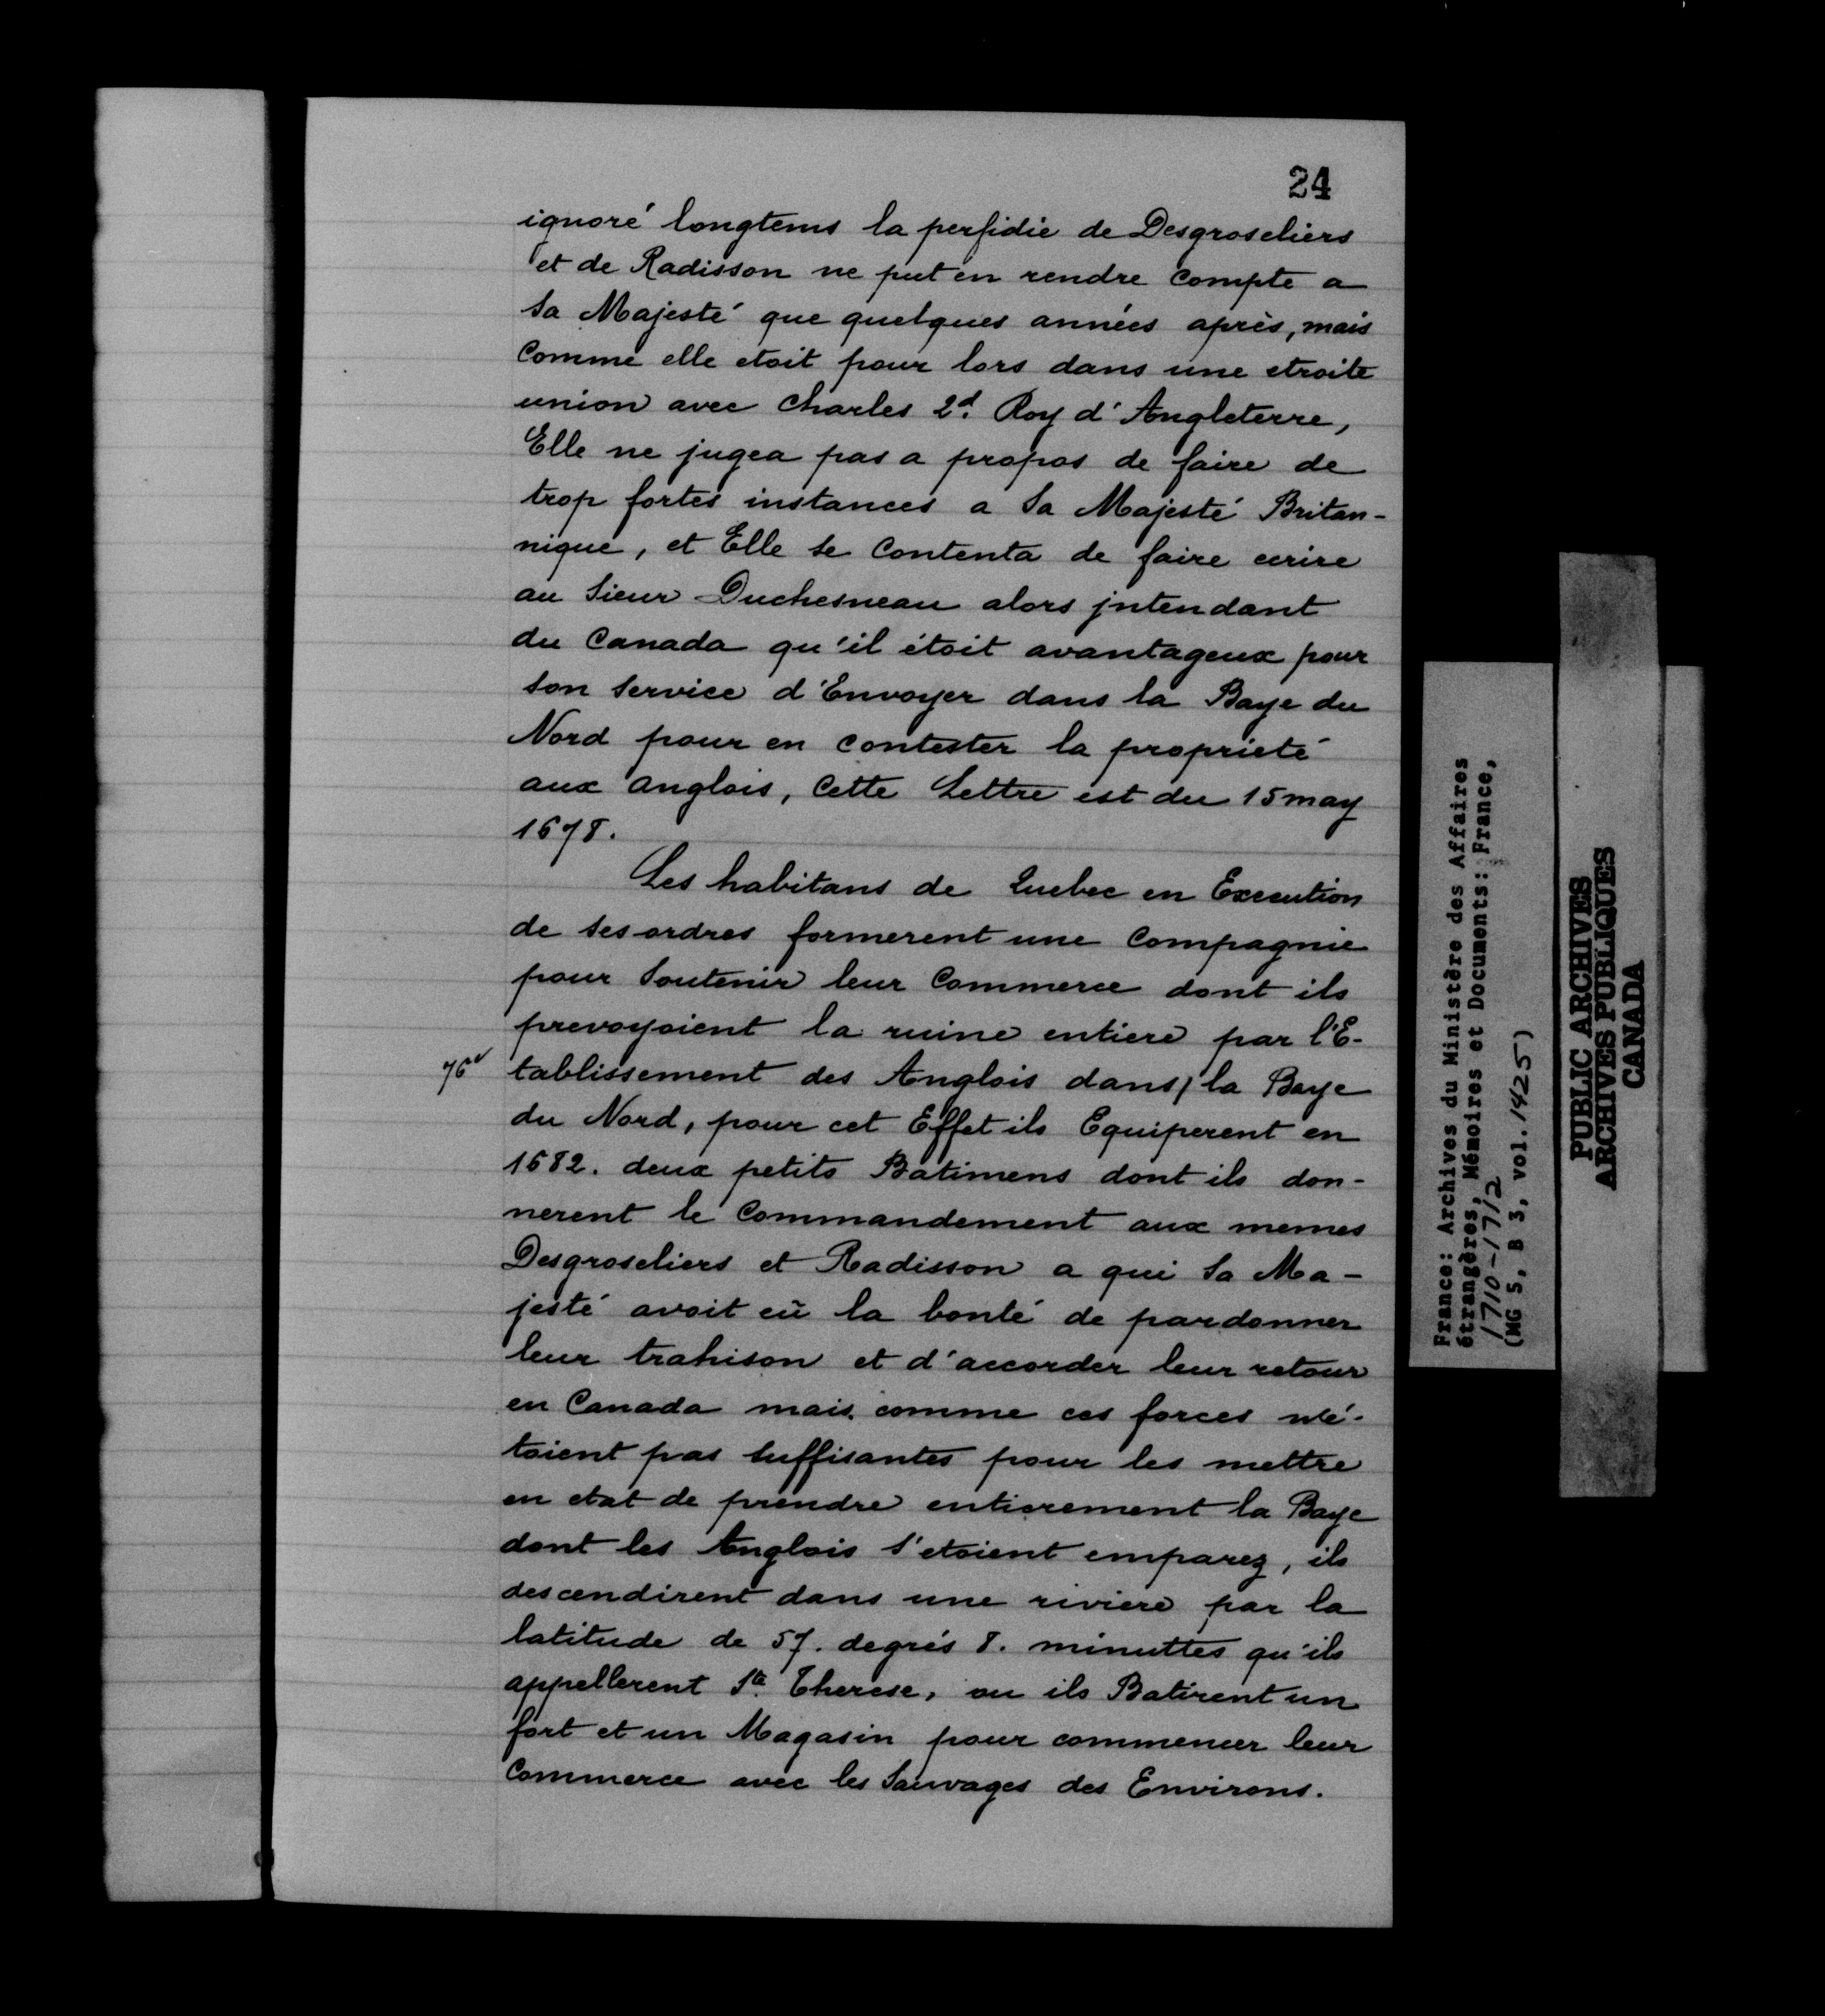 24
ignoré longtems la perfidie de Desgroseliers
et de Radisson ne put en rendre Compte a
Sa Majesté que quelques années après, mais
Comme elle etoit pour lors dans une etroite
union avec Charles 2d. Roy d'Angleterre,
Elle ne jugea pas a propos de faire de
trop fortes instances a Sa Majesté Britan-
nique, et Elle se Contenta de faire ecrire
au Sieur Duchesneau alors jntendant
du Canada qu'il étoit avantageux pour
son Service d'Envoyer dans la Baye du
Nord pour en contester la proprieté
aux anglois, Cette Lettre est du 15 may
1678.
Les habitans de Quebec en Execution
de ses ordres formerent une Compagnie
pour Soutenir leur Commerce dont ils
prevoyoient la ruine entiere par l'E-
76 tablissement des Anglois dans/ la Baye
du Nord, pour cet Effet ils Equiperent en
1682. deux petits Batimens dont ils don-
nerent le Commandement aux memes
Desgroseliers et Radisson a qui Sa Ma-
jesté avoit eû la bonté de pardonner
leur trahison et d'accorder leur retour
en Canada mais comme ces forces n'é-
toient pas Suffisantes pour les mettre
en etat de prendre entierement la Baye
dont les Anglois s'etoient emparez, ils
descendirent dans une riviere par la
latitude de 57. degrés 8. minuttes qu'ils
appellerent Ste. Therese, ou ils Batirent un
fort et un Magasin pour commencer leur
Commerce avec les Sauvages des Environs.
France: Archives du Ministère des Affaires
étrangères, Mémoires et Documents: France,
1710-1712
(MG 5, B 3, vol. 1425)
PUBLIC ARCHIVES
ARCHIVES PUBLIQUES
CANADA